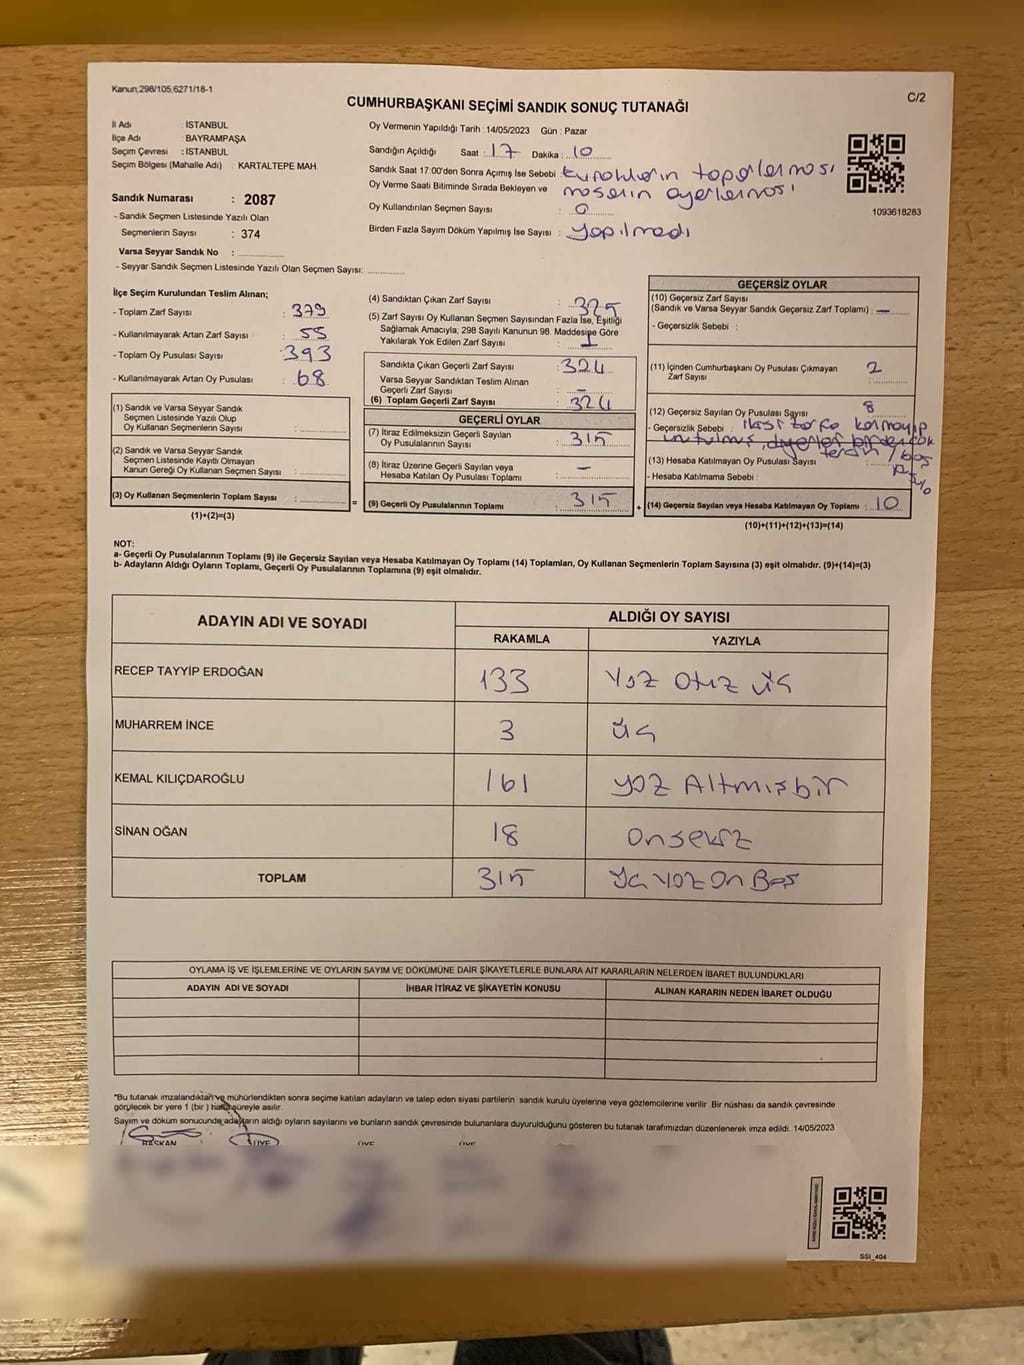 Kanun;298/105;6271/18-1
C/2
CUMHURBAŞKANI SEÇİMİ SANDIK SONUÇ TUTANAĞI
İl Adı : İSTANBUL
İlçe Adı : BAYRAMPAŞA
Seçim Çevresi : İSTANBUL
Seçim Bölgesi (Mahalle Adı) : KARTALTEPE MAH.
Sandık Numarası : 2087
- Sandık Seçmen Listesinde Yazılı Olan
Seçmenlerin Sayısı : 374
Varsa Seyyar Sandık No :
- Seyyar Sandık Seçmen Listesinde Yazılı Olan Seçmen Sayısı:
Oy Vermenin Yapıldığı Tarih : 14/05/2023 Gün : Pazar
Sandığın Açıldığı Saat : 17 Dakika : 10
Sandık Saat 17:00'den Sonra Açımış İse Sebebi : toparlanması
Oy Verme Saati Bitiminde Sırada Bekleyen ve masanın ayarlanması
Oy Kullandırılan Seçmen Sayısı : 0
Birden Fazla Sayım Döküm Yapılmış İse Sayısı : yapılmadı
1093618283
İlçe Seçim Kurulundan Teslim Alınan;
- Toplam Zarf Sayısı : 379
- Kullanılmayarak Artan Zarf Sayısı : 55
- Toplam Oy Pusulası Sayısı : 393
- Kullanılmayarak Artan Oy Pusulası : 68
(1) Sandık ve Varsa Seyyar Sandık
Seçmen Listesinde Yazılı Olup
Oy Kullanan Seçmenlerin Sayısı :
(2) Sandık ve Varsa Seyyar Sandık
Seçmen Listesinde Kayıtlı Olmayan
Kanun Gereği Oy Kullanan Seçmen Sayısı :
(3) Oy Kullanan Seçmenlerin Toplam Sayısı :
(1)+(2)=(3)
(4) Sandıktan Çıkan Zarf Sayısı : 325
(5) Zarf Sayısı Oy Kullanan Seçmen Sayısından Fazla İse, Eşitliği
Sağlamak Amacıyla; 298 Sayılı Kanunun 98. Maddesine Göre
Yakılarak Yok Edilen Zarf Sayısı : 1
Sandıkta Çıkan Geçerli Zarf Sayısı : 324
Varsa Seyyar Sandıktan Teslim Alınan
Geçerli Zarf Sayısı : –
(6) Toplam Geçerli Zarf Sayısı : 324
GEÇERLİ OYLAR
(7) İtiraz Edilmeksizin Geçerli Sayılan
Oy Pusulasının Sayısı : 315
(8) İtiraz Üzerine Geçerli Sayılan veya
Hesaba Katılan Oy Pusulası Toplamı : –
= (9) Geçerli Oy Pusulalarının Toplamı : 315
GEÇERSİZ OYLAR
(10) Geçersiz Zarf Sayısı
(Sandık ve Varsa Seyyar Sandık Geçersiz Zarf Toplamı) : –
- Geçersizlik Sebebi :
(11) İçinden Cumhurbaşkanı Oy Pusulası Çıkmayan
Zarf Sayısı : 2
(12) Geçersiz Sayılan Oy Pusulası Sayısı : 8
- Geçersizlik Sebebi : ikisi zarfa
unutulmuş, diğerleri
(13) Hesaba Katılmayan Oy Pusulası Sayısı
- Hesaba Katılmama Sebebi :
+ (14) Geçersiz Sayılan veya Hesaba Katılmayan Oy Toplamı : 10
(10)+(11)+(12)+(13)=(14)
NOT:
a- Geçerli Oy Pusulalarının Toplamı (9) ile Geçersiz Sayılan veya Hesaba Katılmayan Oy Toplamı (14) Toplamları, Oy Kullanan Seçmenlerin Toplam Sayısına (3) eşit olmalıdır. (9)+(14)=(3)
b- Adayların Aldığı Oyların Toplamı, Geçerli Oy Pusulalarının Toplamına (9) eşit olmalıdır.
ADAYIN ADI VE SOYADI ALDIĞI OY SAYISI
RAKAMLA YAZIYLA
RECEP TAYYİP ERDOĞAN 133 Yüz Otuz üç
MUHARREM İNCE 3 üç
KEMAL KILIÇDAROĞLU 161 yüz Altmışbir
SİNAN OĞAN 18 onsekiz
TOPLAM 315 üç yüz on Beş
OYLAMA İŞ VE İŞLEMLERİNE VE OYLARIN SAYIM VE DÖKÜMÜNE DAİR ŞİKAYETLERLE BUNLARA AİT KARARLARIN NELERDEN İBARET BULUNDUKLARI
ADAYIN ADI VE SOYADI İHBAR İTİRAZ VE ŞİKAYETİN KONUSU ALINAN KARARIN NEDEN İBARET OLDUĞU
"Bu tutanak imzalandıktan ve mühürlendikten sonra seçime katılan adayların ve talep eden siyasi partilerin sandık kurulu üyelerine veya gözlemcilerine verilir. Bir nüshası da sandık çevresinde
görülecek bir yere 1 (bir) hafta süreyle asılır.
Sayım ve döküm sonucunda adayların aldığı oyların sayılarını ve bunların sandık çevresinde bulunanlara duyurulduğunu gösteren bu tutanak tarafımızdan düzenlenerek imza edildi. 14/05/2023
BAŞKAN ÜYE ÜYE ÜYE
SSI_404